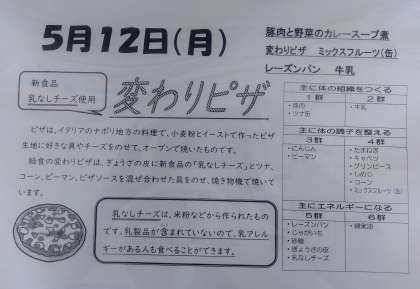 5月12日(月)
豚肉と野菜のカレースープ煮
変わりピザ ミックスフルーツ(缶)
レーズンパン 牛乳
新食品
乳なしチーズ使用
変わりピザ
ピザは、イタリアのナポリ地方の料理で、小麦粉とイーストで作ったピザ
生地に好きな具やチーズをのせて、オーブンで焼いたものです。
給食の変わりピザは、ぎょうざの皮に新食品の「乳なしチーズ」とツナ、
コーン、ピーマン、ピザソースを混ぜ合わせた具をのせ、焼き物機で焼いて
います。
乳なしチーズは、米粉などから作られたもの
です。乳製品が含まれていないので、乳アレル
ギーがある人も食べることができます。
主に体の組織をつくる
1群 2群
・豚肉 ・牛乳
・ツナ缶
主に体の調子を整える
3群 4群
・にんじん ・たまねぎ
・ピーマン ・キャベツ
・グリンピース
・しめじ
・コーン
・ミックスフルーツ(缶)
主にエネルギーになる
5群 6群
・レーズンパン ・綿実油
・じゃがいも
・砂糖
・ぎょうざの皮
・乳なしチーズ